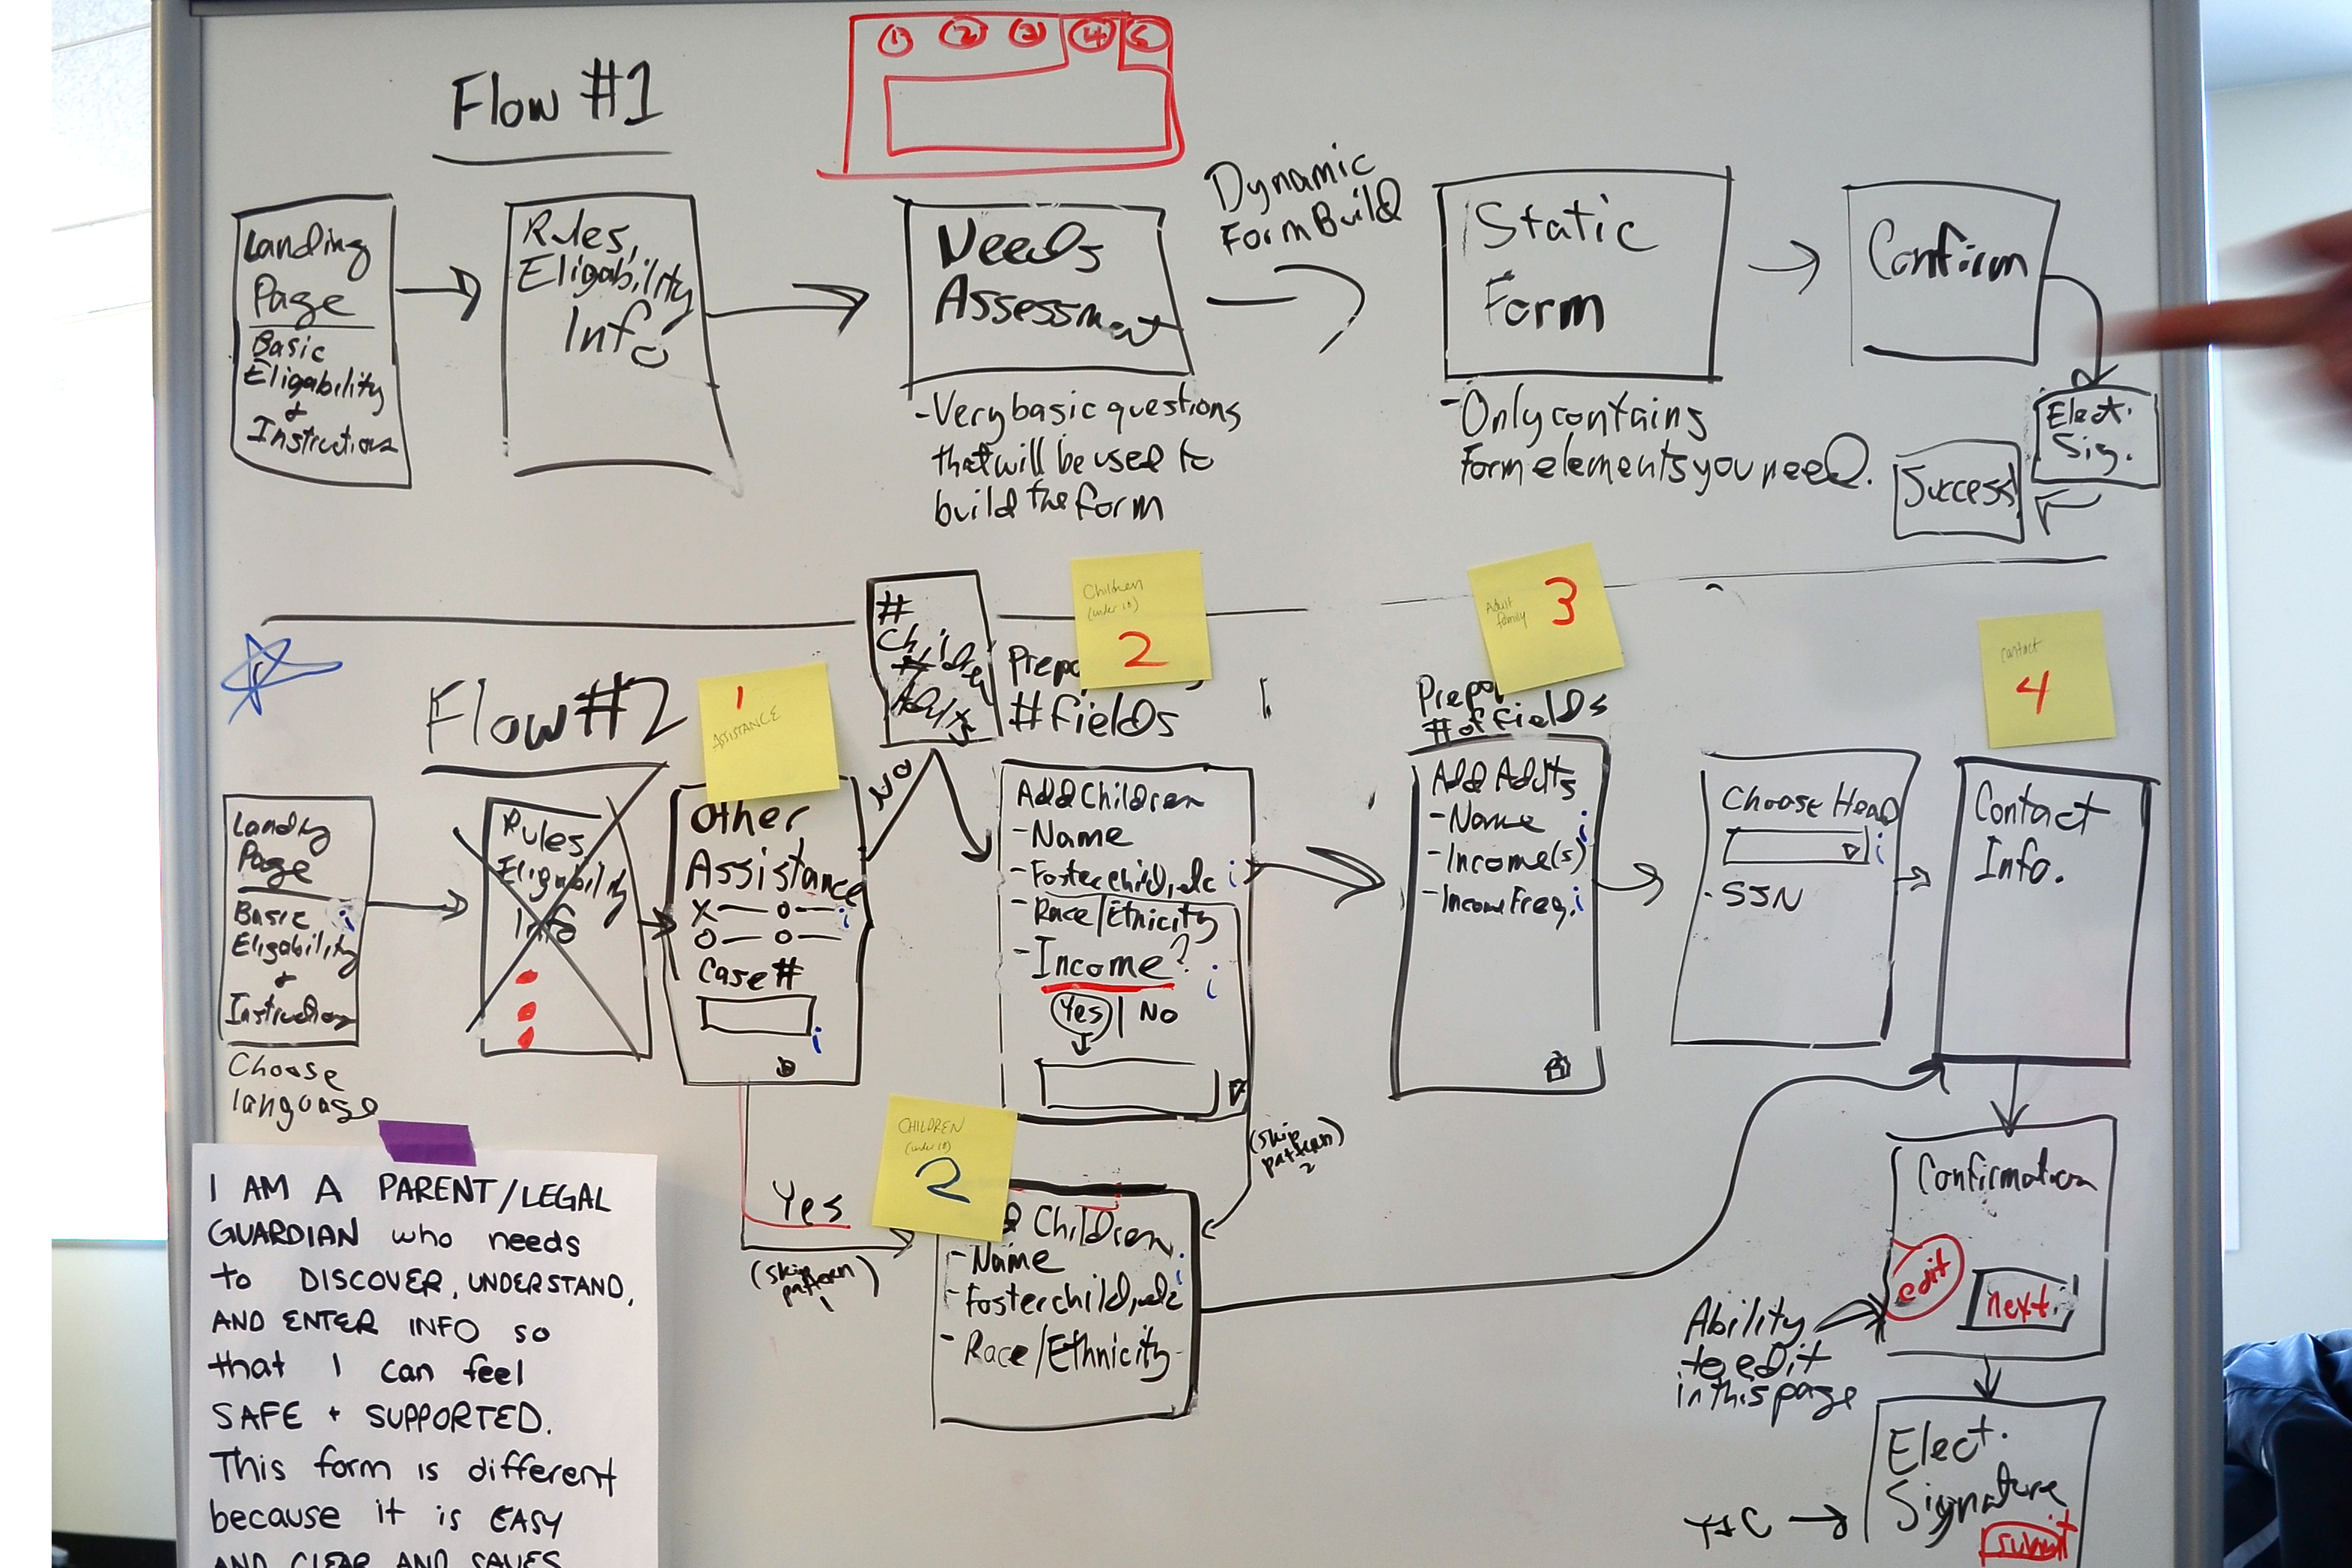 ① ② ③ ④ ⑤
Flow #1
Landing
Page
Basic
Eligability
&
Instructions
Rules,
Eligability
Info
Needs
Assessment
-Very basic questions
that will be used to
build the form
Dynamic
Form Build
Static
Form
-Only contains
form elements you need.
Confirm
Elect.
Sig.
Success
Flow #2
Landing
Page
Basic i
Eligability
&
Instructions
Choose
language
Rules
Eligability
Info
1
ASSISTANCE
Other
Assistance
X— o— i
o— o—
Case #
i
No
#
Children
#
Adults
Children
(under 18)
2
Prepo
# fields
Add Children
-Name
-Foster child, etc i
-Race/Etnicity
-Income? i
Yes | No
(skip
pattern)
2
Yes
(skip
pattern)
1
CHILDREN
(under 18)
2
Children
-Name i
-Foster child, etc i
-Race/Ethnicity
Adult
family
3
Prepo
# of fields
Add Adults
-Name i
-Income(s)
-Income Freq. i
Choose Head
i
-SSN
contact
4
Contact
Info.
Confirmation
edit
next
Ability
to edit
in this page
Elect.
Signature
submit
T&C
I AM A PARENT/LEGAL
GUARDIAN who needs
to DISCOVER, UNDERSTAND,
AND ENTER INFO so
that I can feel
SAFE + SUPPORTED.
This form is different
because it is EASY
AND CLEAR AND SAVES